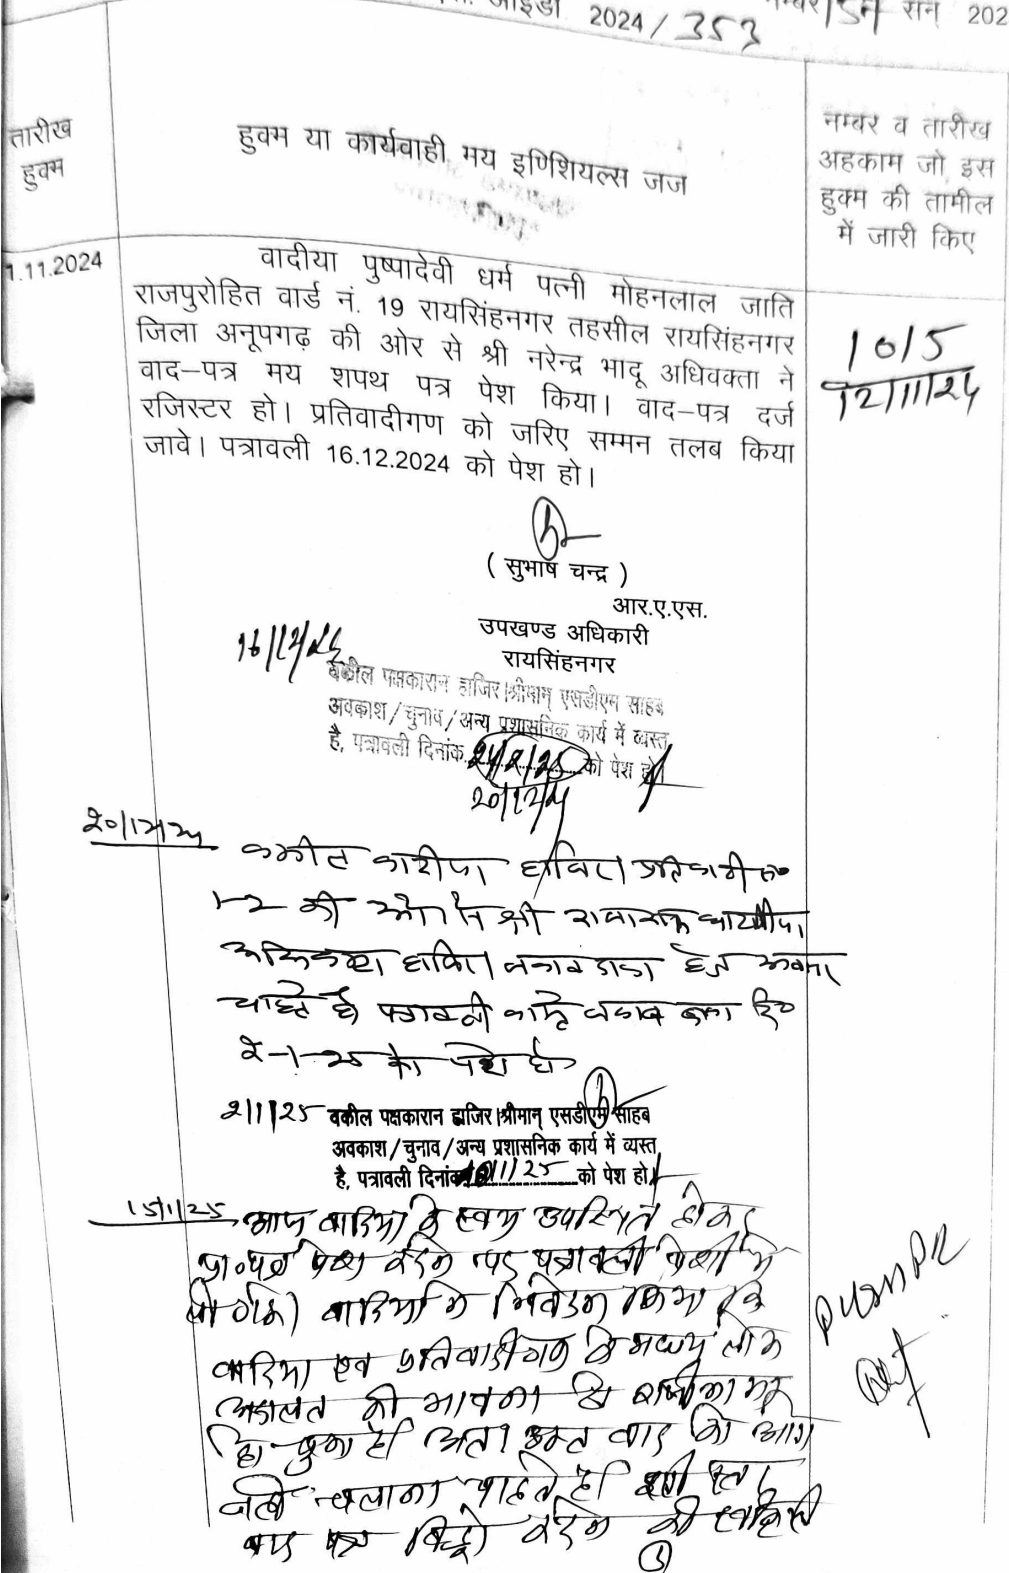 आईडी 2024/353 नम्बर 157 सन 202
तारीख
हुक्म
हुक्म या कार्यवाही मय इणिशियल्स जज
नम्बर व तारीख
अहकाम जो इस
हुक्म की तामील
में जारी किए
1.11.2024
वादीया पुष्पादेवी धर्म पत्नी मोहनलाल जाति
राजपुरोहित वार्ड नं. 19 रायसिंहनगर तहसील रायसिंहनगर
जिला अनूपगढ़ की ओर से श्री नरेन्द्र भादू अधिवक्ता ने
वाद-पत्र मय शपथ पत्र पेश किया। वाद-पत्र दर्ज
रजिस्टर हो। प्रतिवादीगण को जरिए सम्मन तलब किया
जावे। पत्रावली 16.12.2024 को पेश हो।
1015
12/11/24
( सुभाष चन्द्र )
आर.ए.एस.
उपखण्ड अधिकारी
रायसिंहनगर
16/12/24
वकील पक्षकारान हाजिर।श्रीमान् एसडीएम साहब
अवकाश/चुनाव/अन्य प्रशासनिक कार्य में व्यस्त
है, पत्रावली दिनांक को पेश हो।
20/12/24
20/12/24
वकील वादीया हाजिर। प्रतिवादी सं०
1-2 की ओर से श्री
अधिवक्ता हाजिर। जवाब दावा हेतु अवसर
चाहते है। पत्रावली वास्ते जवाब दावा दि०
2-1-25 को पेश हो
2/1/25 वकील पक्षकारान हाजिर।श्रीमान् एसडीएम साहब
अवकाश/चुनाव/अन्य प्रशासनिक कार्य में व्यस्त
है, पत्रावली दिनांक /1/25 को पेश हो।
15/1/25 आज वादिया ने स्वयं उपस्थित होकर
प्रा०पत्र पेश करने पर पत्रावली पेशी में
ली गई। वादिया ने निवेदन किया कि
वादिया एवं प्रतिवादीगण के मध्य लोक
अदालत की भावना से राजीनामा
हो चुका है। अतः उक्त वाद को आगे
नहीं चलाना चाहते है।
वाद पत्र विड्रो करने की